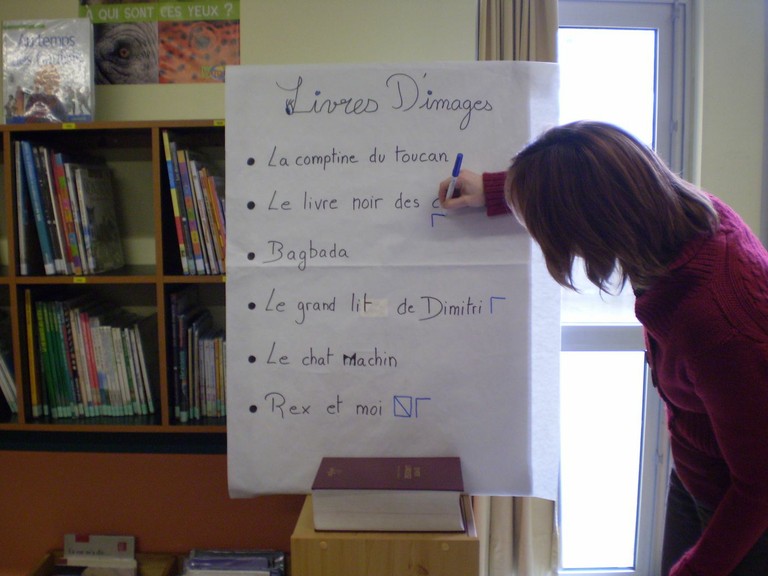 À QUI SONT CES YEUX ?
Livres D'images
La comptine du toucan
Le livre noir des c
Bagbada
Le grand lit de Dimitri
Le chat Machin
Rex et moi